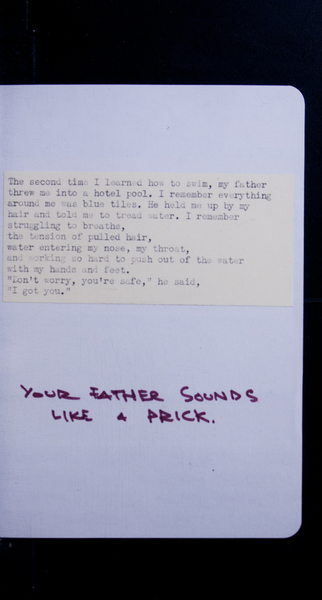 The second time I learned how to swim, my father
threw me into a hotel pool. I remember everything
around me was blue tiles. He held me up by my
hair and told me to tread water. I remember
struggling to breaths,
the tension of pulled hair,
water entering my nose, my throat,
and working so hard to push out of the water
with my hands and feet.
"Don't worry, you're safe," he said,
"I got you."
YOUR FATHER SOUNDS
LIKE A PRICK.